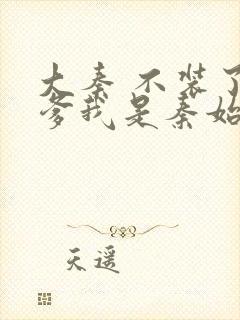 大秦 不装了
爹我是秦始
天遥